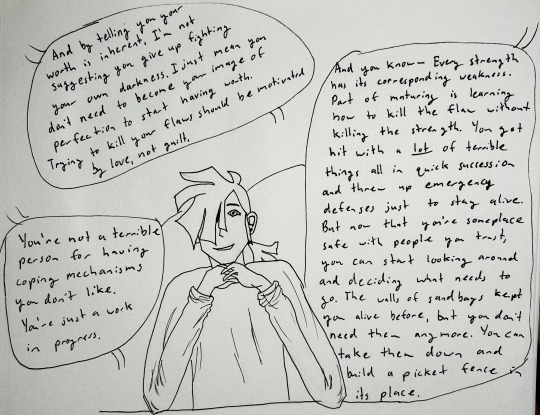 And by telling you your
worth is inherent, I'm not
suggesting you give up fighting
your own darkness. I just mean you
don't need to become your image of
perfection to start having worth.
Trying to kill your flaws should be motivated
by love, not guilt.
And you know— Every strength
has its corresponding weakness.
Part of maturing is learning
how to kill the flaw without
killing the strength. You got
hit with a lot of terrible
things all in quick succession
and threw up emergency
defenses just to stay alive.
But now that you're someplace
safe with people you trust,
you can start looking around
and deciding what needs to
go. The walls of sandbags kept
you alive before, but you don't
need them anymore. You can
take them down and
build a picket fence in
its place.
You're not a terrible
person for having
coping mechanisms
you don't like.
You're just a work
in progress.